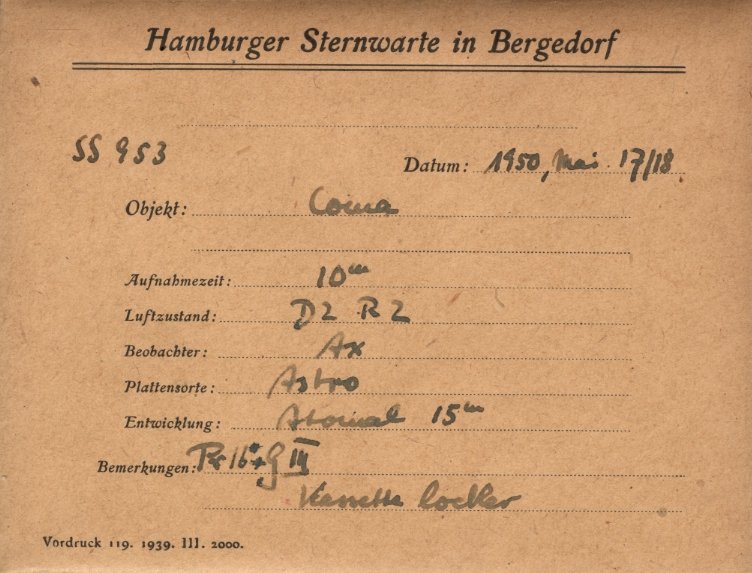 Hamburger Sternwarte in Bergedorf
SS 953
Datum: 1950, Mai 17/18
Objekt: Coma
Aufnahmezeit: 10ᵐ
Luftzustand: D2 R2
Beobachter: Ax
Plattensorte: Astro
Entwicklung: Atomal 15ᵐ
Bemerkungen: III
Kassette locker
Vordruck 119. 1939. III. 2000.